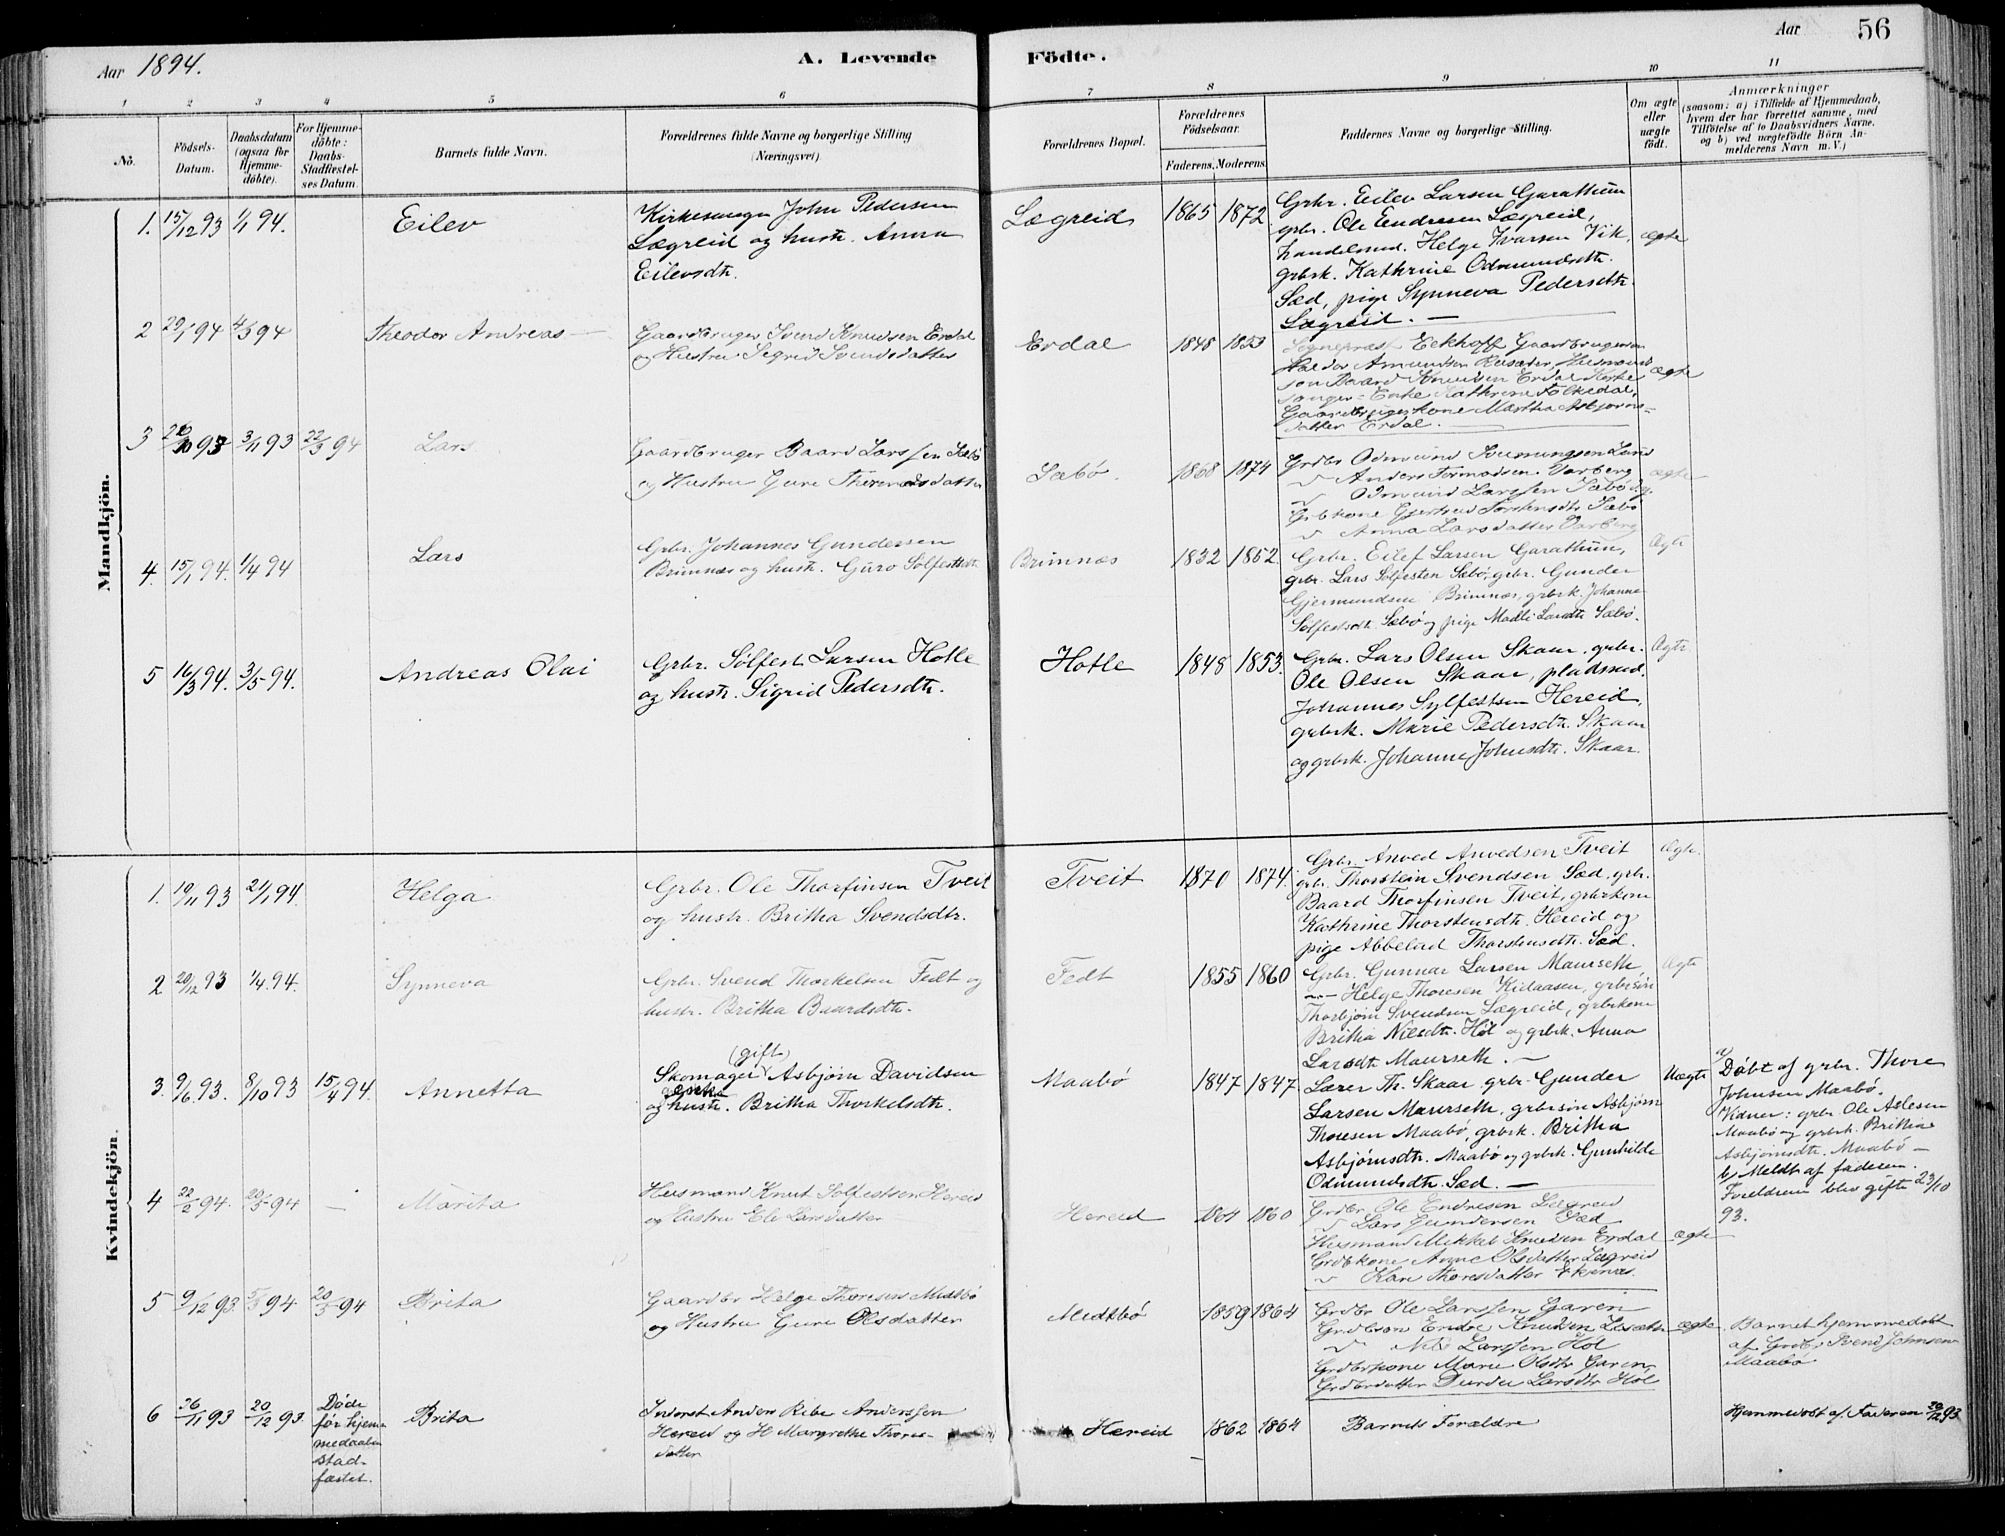 Aar 1894.
A. Levende Födte.
Aar 56
1 2 3 4 5 6 7 8 9 10 11
No.
Födsels-
Datum.
Daabsdatum
(ogsaa for
Hjemme-
döbte).
For Hjemme-
döbte:
Daabs-
Stadfæstel-
ses Datum.
Barnets fulde Navn.
Forældrenes fulde Navne og borgerlige Stilling
(Næringsvei).
Forældrenes Bopæl.
Forældrenes
Födselsaar.
Faderens. Moderens.
Faddernes Navne og borgerlige Stilling.
Om ægte
eller
uægte
födt.
Anmærkninger
(saasom: a) i Tilfælde af Hjemmedaab,
hvem der har forrettet samme, med
Tilföielse af to Daabsvidners Navne,
og b) ved uægtefödte Börn An-
melderens Navn m. V.)
Mandkjön.
1. 15/12 93 1/1 94.
Eilev
Kirkesanger John Pedersen
Lægreid og hustr. Anna
Eilevsdtr.
Lægreid
1865 1872
Grbr. Eilev Larsen Garathun
grbr. Ole Endresen Lægreid,
handelsmd. Helge Ivarsen Vik,
grbrk. Kathrine Odmundsdtr.
Sæd, pige Synneva Pedersdtr.
Lægreid. —
ægte
2 29/1 94 4/3 94
Theodor Andreas
Gaardbruger Svend Knudsen Erdal
og Hustru Sigrid Svendsdatter
Erdal
1848 1853
Sognepræst Eekhoff Gaardbrugerson
Haldor Amundsen Reisæter, Husmand
son Baard Knudsen Erdal Kirke
sanger-Enke Kathrine Folkedal,
Gaardbrugerkone Martha Asbjørns-
datter Erdal.
ægte
3 93 3/11 93 22/3 94
Lars
Gaardbruger Baard Larssen Sæbö
og Hustru Guro datter
Sæbö.
1868 1874
Grdbr Odmund Lund
" Anders Tormodsen Varberg
" Odmund Larssen Sæbö
Grbkone Gjertrud Torstensdtr Sæbö
" Anna Larsdatter Varberg
ægte
4. 15/1 94. 1/4 94
Lars
Grbr. Johannes Gundersen
Brimnæs og hustr. Guro Solfestsdtr
Brimnæs
1832 1852.
Grbr. Eilef Larsen Garathun,
grbr. Lars Solfesten Sæbö, grbr. Gunder
Gjermundsen Brimnæs, grbrk. Johanna
Solfestsdtr. Sæbö og pige Madli Larsdtr Sæbö.
Ægte
5 16/3 94. 3/5 94.
Andreas Olai
Grbr. Sölfest Larsen Hotle
og hustr. Sigrid Pedersdtr.
Hotle
1848 1853.
Grbr. Lars Olsen Skaar, grbr.
Ole Olsen Skaar, pladsmd.
Johannes Sylfestsen Hereid,
grbrk. Marie Pedersdtr. Skaar
og grbrk. Johanne Johnsdtr. Skaar.
Ægte
Kvindekjön.
1. 19/11 93 21/1 94.
Helga
Grbr. Ole Thorfinsen Tveit
og hustr. Britha Svendsdtr.
Tveit
1870 1874.
Grbr. Anved Anvedsen Tveit
grbr. Thorstein Svendsen Sæd, grbr.
Baard Thorfinsen Tveit, grbrkone
Kathrine Thorstensdtr. Hereid og
pige Abbelad Thorstensdtr. Sæd.
Ægte.
2 20/12 93 1/4 94.
Synneva
Grbr. Svend Thorkelsen Fedt og
hustr. Britha Baardsdtr.
Fedt
1855 1860
Grbr. Gunnar Larsen Maurseth
—"— Helge Thoresen Kidaasen, grbrsön
Thorbjörn Svendsen Lægreid, grbrkone
Britha Nilsdtr. Höl og grbrk. Anna
Larsdtr Maurseth. —
Ægte
3. 9/6 93. 8/10 93 15/4 94.
Annetta
(gift)
Skomager Asbjörn Davidsen
enke
og hustr. Britha Thorkelsdtr.
Maabö
1847 1847
Lærer Th. Skaar grbr. Gunder
Larsen Maurseth, grbrsön Asbjörn
Thoresen Maabö, grbrk. Britha
Asbjörnsdtr. Maabö og grbrk. Gunhilde
Odmundsdtr. Sæd. —
Uægte
a) Döbt af grbr. Thore
Johnsen Maabö.
Vidner: grbr. Ole Aslesen
Maabö og grbrk. Britha
Asbjörnsdtr. Maabö —
b) Meldt af faderen.
Foreldrene blev gifte 23/10
93.
4 22/2 94. 20/5 94 —
Marita
Husmand Knut Solfestsen Hereid
og Hustru Eli Larsdatter
Hereid
1864 1860
Grdbr Ole Endresen Legreid
" Lars Gundersen Sæd
Husmand Mikkel Knudsen Erdal
Grdbkone Anne Olsdatter Legreid
" Kari Thoresdatter
ægte
5 9/12 93. 94 20/5 94
Brita
Gaardbr Helge Thoresen Midtbö
og Hustru Guro Olsdatter
Midtbö
1859 1864
Grdbr Ole Larssen Garen
Grdbson Endre Knudsen
" Nils Larssen Höl
Grdbrkone Mari Olsdtr Garen,
Grdbrdatter Durdei Larsdtr Höl
ægte
Barnet hjemmedöbt
af Grdbr Svend Johnsen
Maabö
6 26/11 93 20/12 93.
Döde
før hjem-
medaaben
stad-
fæstet.
Brita
Inderst Anders Ribe Anderssen
Hereid og H Margrethe Thores-
datter
Hereid
1862 1864
Barnets Forældre
Hjemmedöbt af Faderen 20/12 93